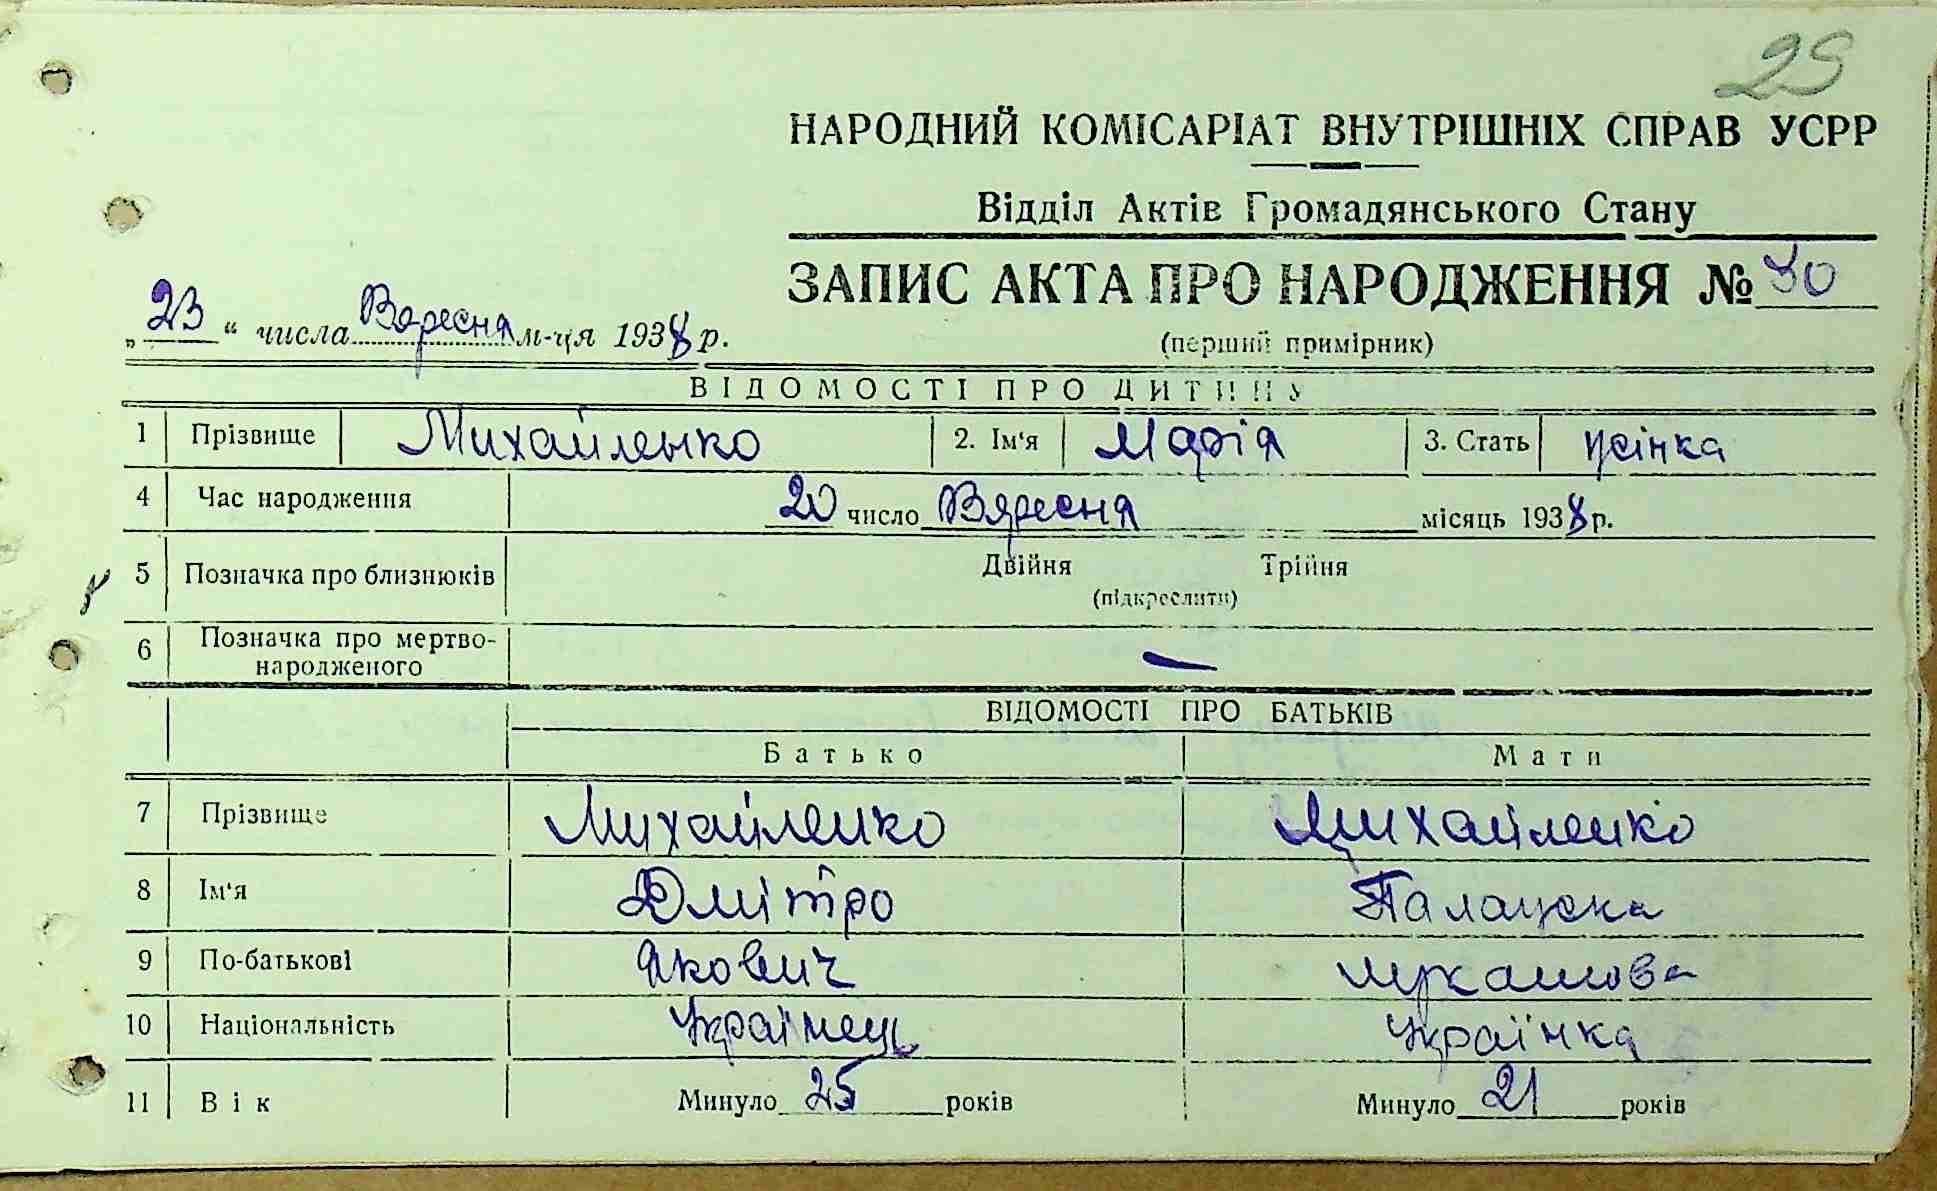 29
НАРОДНИЙ КОМІСАРІАТ ВНУТРІШНІХ СПРАВ УСРР
Відділ Актів Громадянського Стану
ЗАПИС АКТА ПРО НАРОДЖЕННЯ № 30
„23“ числа Вересня м-ця 1938 р.
(перший примірник)
ВІДОМОСТІ ПРО ДИТИНУ
1 Прізвище Михайленко 2. Ім'я Марія 3. Стать жінка
4 Час народження 20 число Вяресня місяць 1938 р.
5 Позначка про близнюків Двійня Трійня
(підкреслити)
6 Позначка про мертво-
народженого —
ВІДОМОСТІ ПРО БАТЬКІВ
Батько Мати
7 Прізвище Михайленко Михайленко
8 Ім'я Дмітро
9 По-батькові Якович Лукашова
10 Національність Українець Українка
11 Вік Минуло 25 років Минуло 21 років